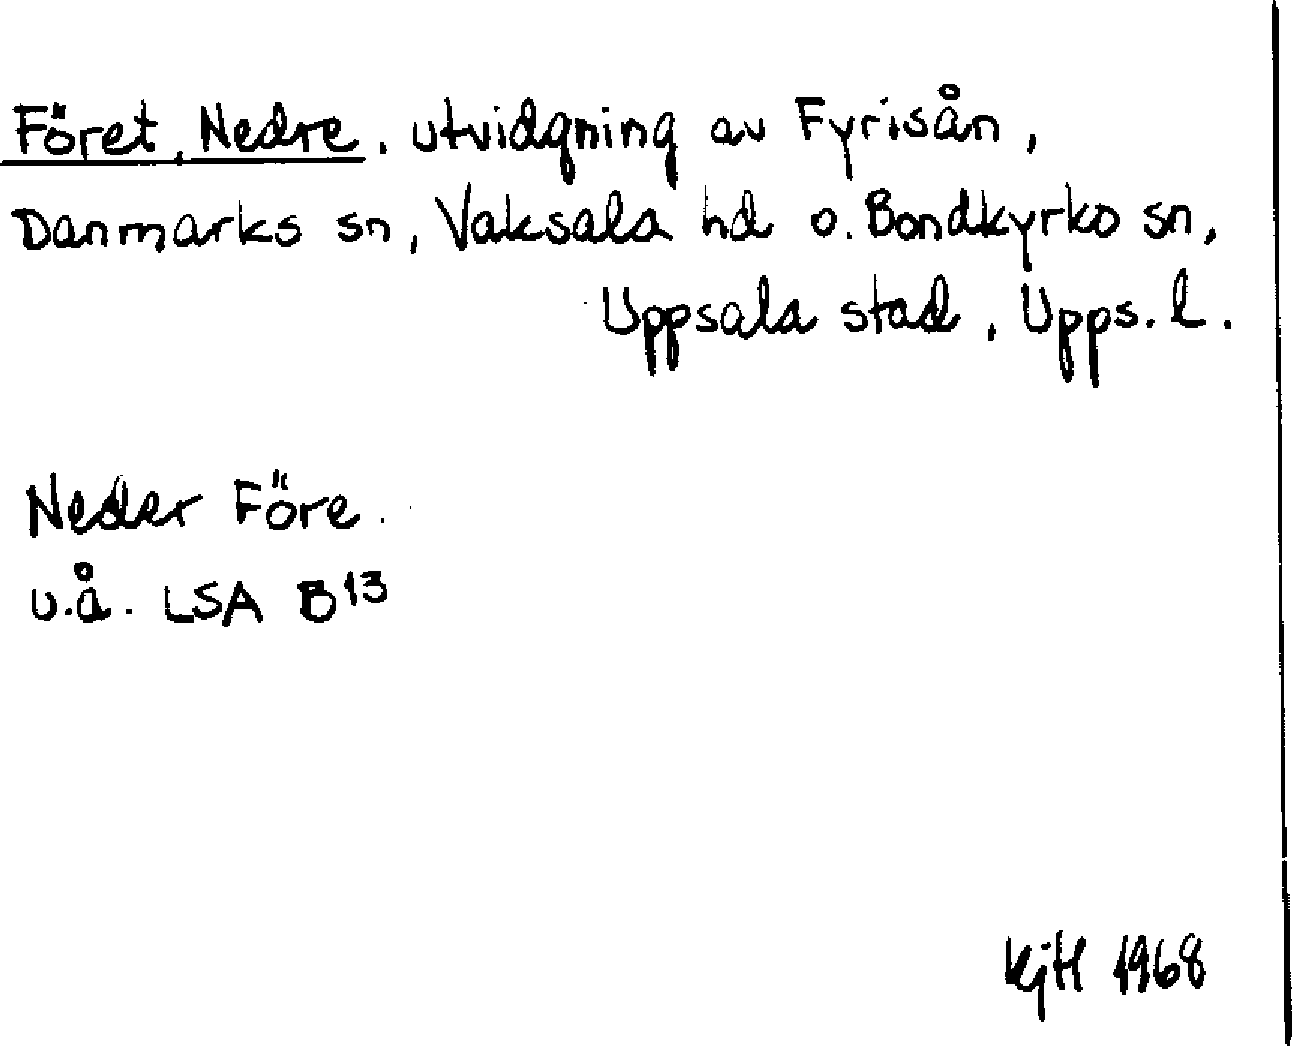 Föret, Nedre, utvidgning av Fyrisån,
Danmarks sn, Vaksala hd o. Bondkyrko sn,
Uppsala stad, Upps. l.
Neder Före.
u.å. LSA B13
KjH 1968